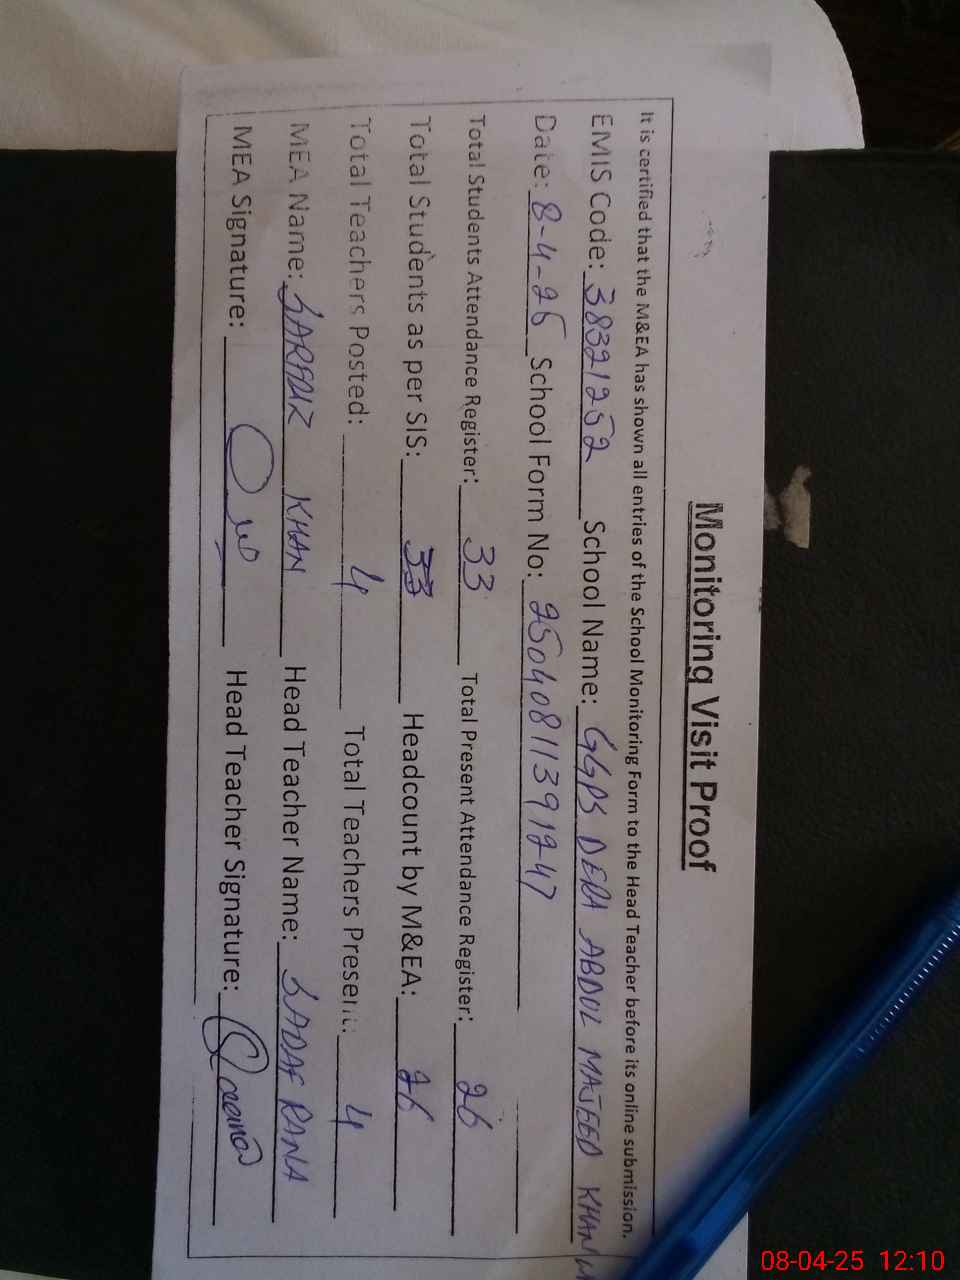 Monitoring Visit Proof
It is certified that the M&EA has shown all entries of the School Monitoring Form to the Head Teacher before its online submission.
EMIS Code: 38321252 School Name: GGPS DERA ABDUL MAJEED KHAN
Date: 8-4-25 School Form No: 25040811391247
Total Students Attendance Register: 33 Total Present Attendance Register: 26
Total Students as per SIS: 33 Headcount by M&EA: 26
Total Teachers Posted: 4 Total Teachers Present: 4
MEA Name: KHAN Head Teacher Name: SADAF RANA
MEA Signature: Head Teacher Signature:
08-04-25 12:10